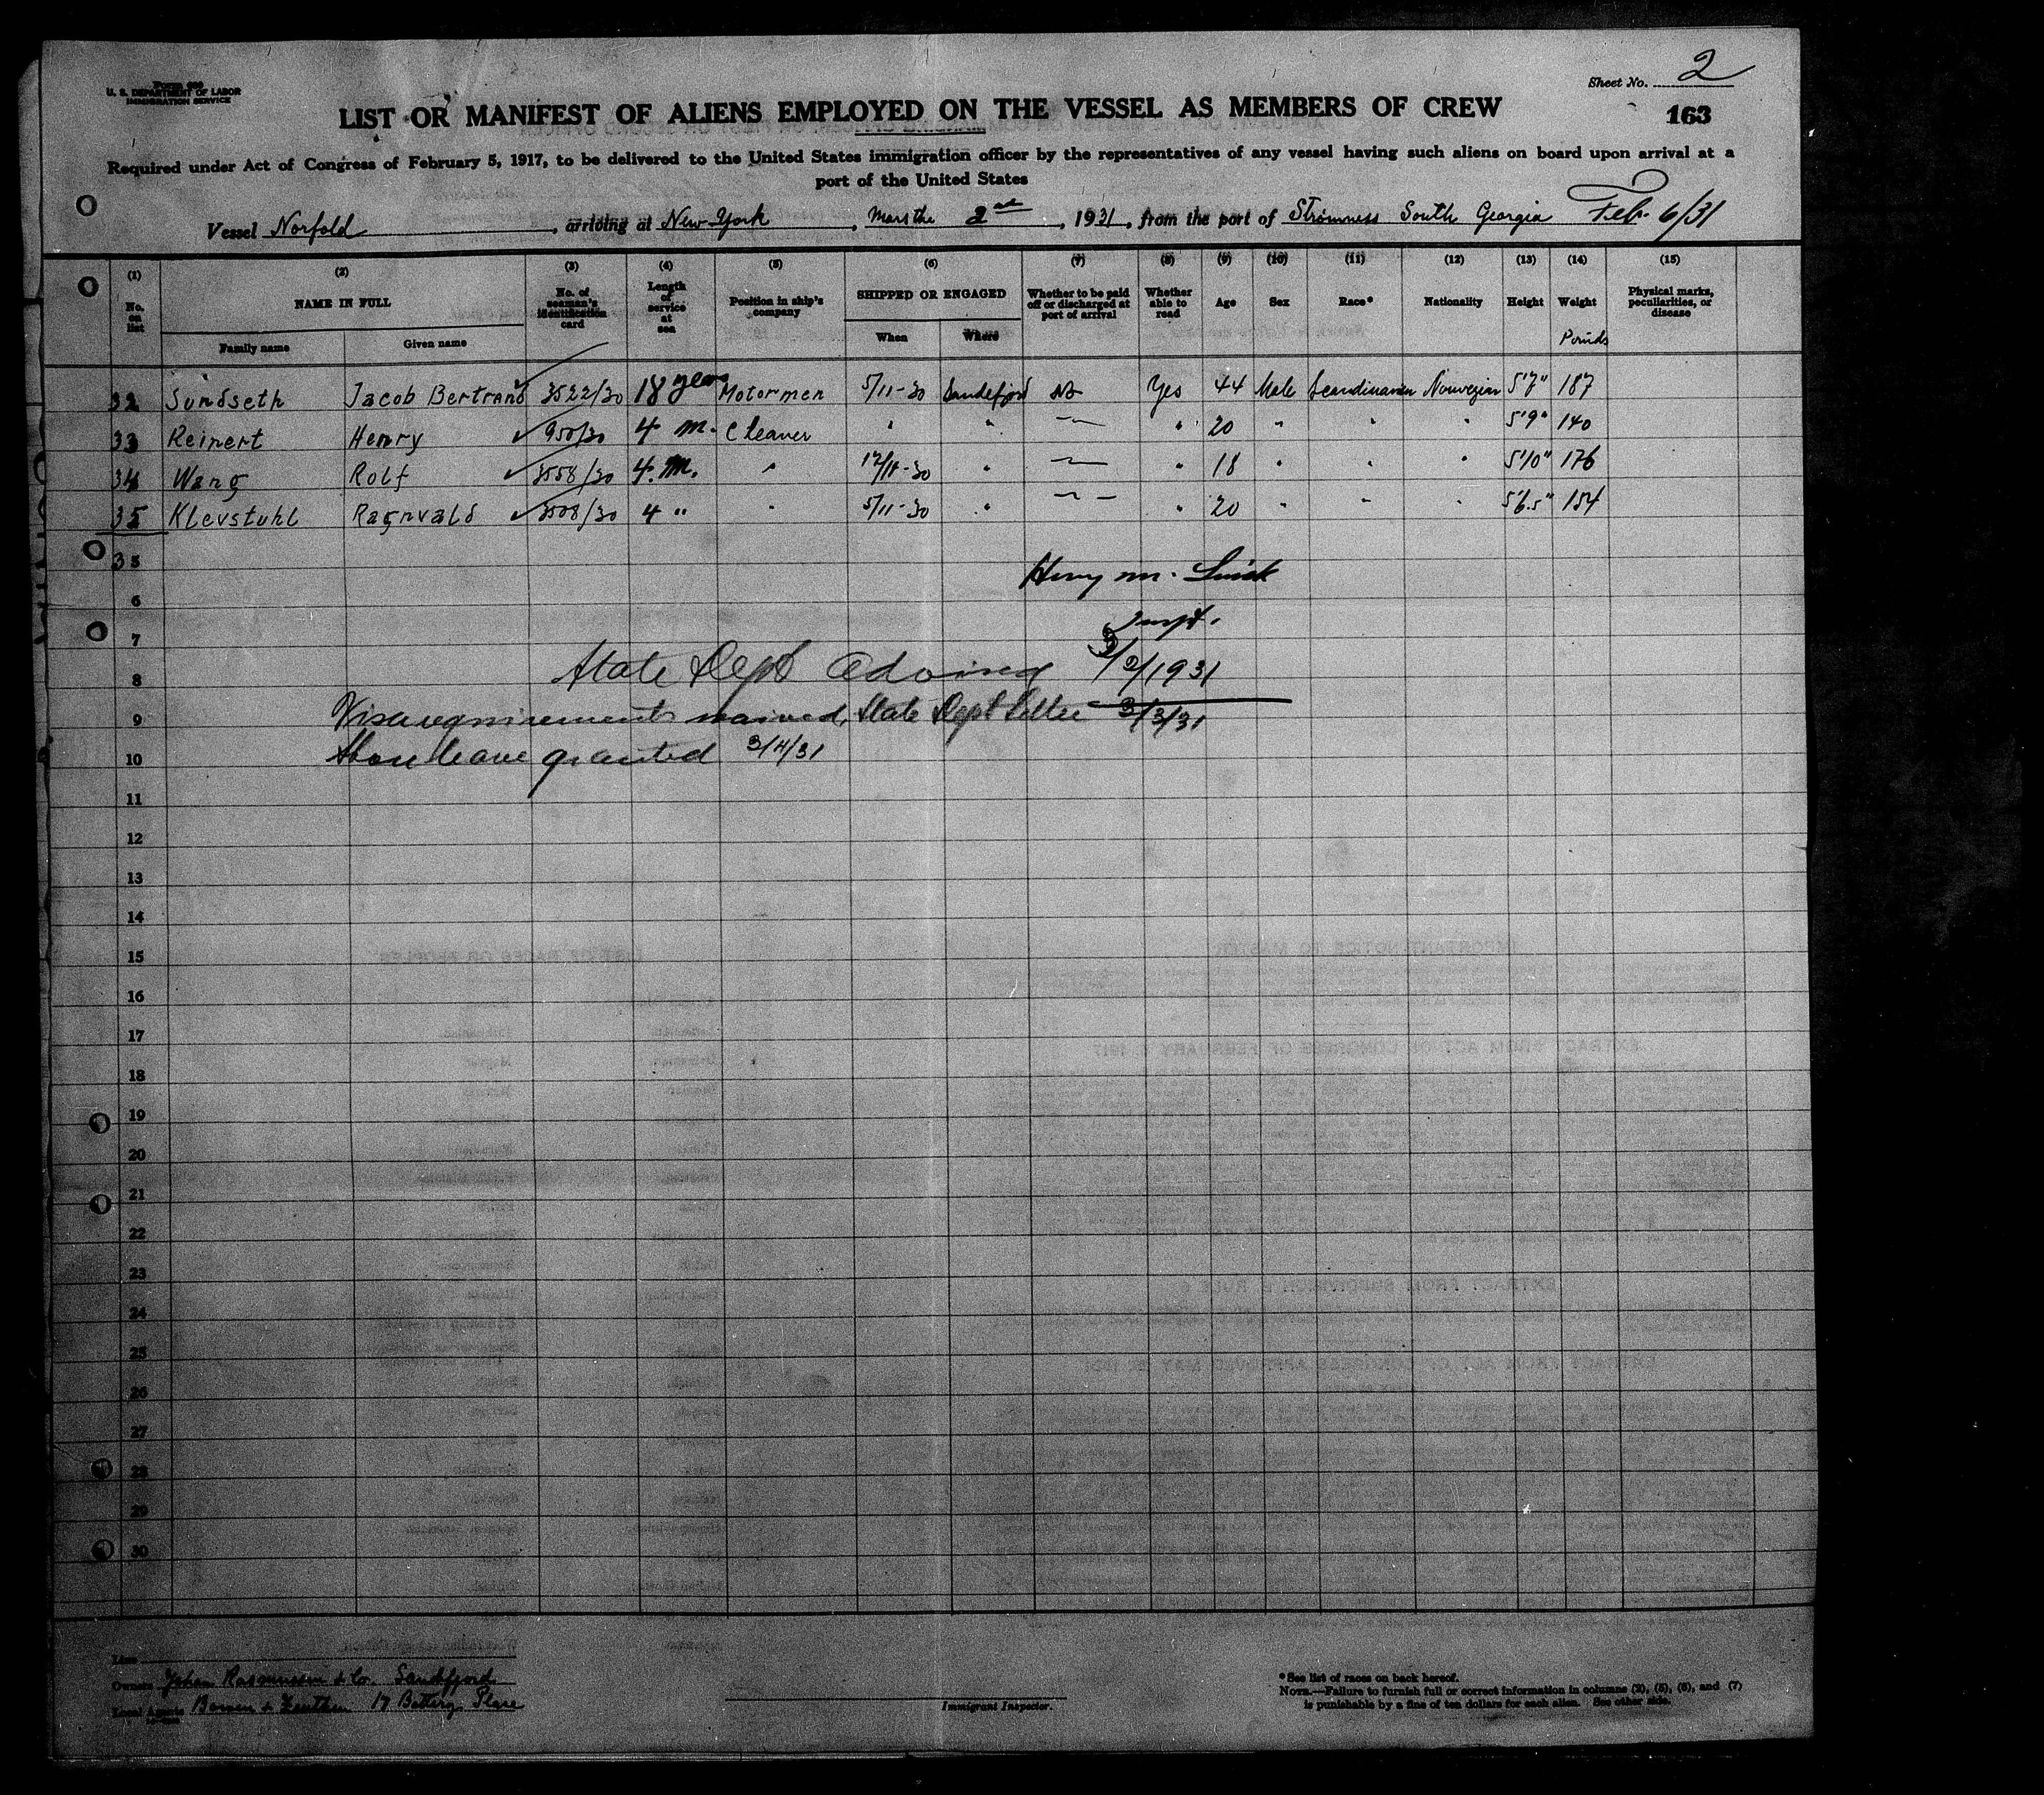 Form 689
U. S. DEPARTMENT OF LABOR
IMMIGRATION SERVICE
Sheet No. 2
LIST OR MANIFEST OF ALIENS EMPLOYED ON THE VESSEL AS MEMBERS OF CREW
163
Required under Act of Congress of February 5, 1917, to be delivered to the United States immigration officer by the representatives of any vessel having such aliens on board upon arrival at a
port of the United States
Vessel Norfold, arriving at New-York, Mars the 2nd, 1931, from the port of Strömness South Georgia Feb. 6/31
(1) (2) (3) (4) (5) (6) (7) (8) (9) (10) (11) (12) (13) (14) (15)
No. on list NAME IN FULL No. of seaman's identification card Length of service at sea Position in ship's company SHIPPED OR ENGAGED Whether to be paid off or discharged at port of arrival Whether able to read Age Sex Race* Nationality Height Weight Physical marks, peculiarities, or disease
Family name Given name When Where Pounds
32 Sundseth Jacob Bertrand 3522/30 18 years Motormen 5/11-30 Sandefjord No Yes 44 Male Scandinavian Norwegian 5'7" 187
33 Reinert Henry 950/30 4 m. Cleaner " " " 20 " " " 5'9" 140
34 Wang Rolf 3558/30 4. m. " 12/11-30 " " 18 " " " 5'10" 176
35 Klevstuhl Ragnvald 3508/30 4 " " 5/11-30 " " 20 " " " 5'6.5" 154
35
Henry m.
6
Inspt.
7
State Dept Advised 3/2/1931
8
Visa requirements waived, State Dept Letter 3/3/31
9
Shore leave granted 3/4/31
10
11
12
13
14
15
16
17
18
19
20
21
22
23
24
25
26
27
28
29
30
Line
Owners Johan Rasmussen & Co. Sandefjord
Local Agents 17 Battery Place
Immigrant Inspector.
*See list of races on back hereof.
NOTE.—Failure to furnish full or correct information in columns (2), (5), (6), and (7)
is punishable by a fine of ten dollars for each alien. See other side.